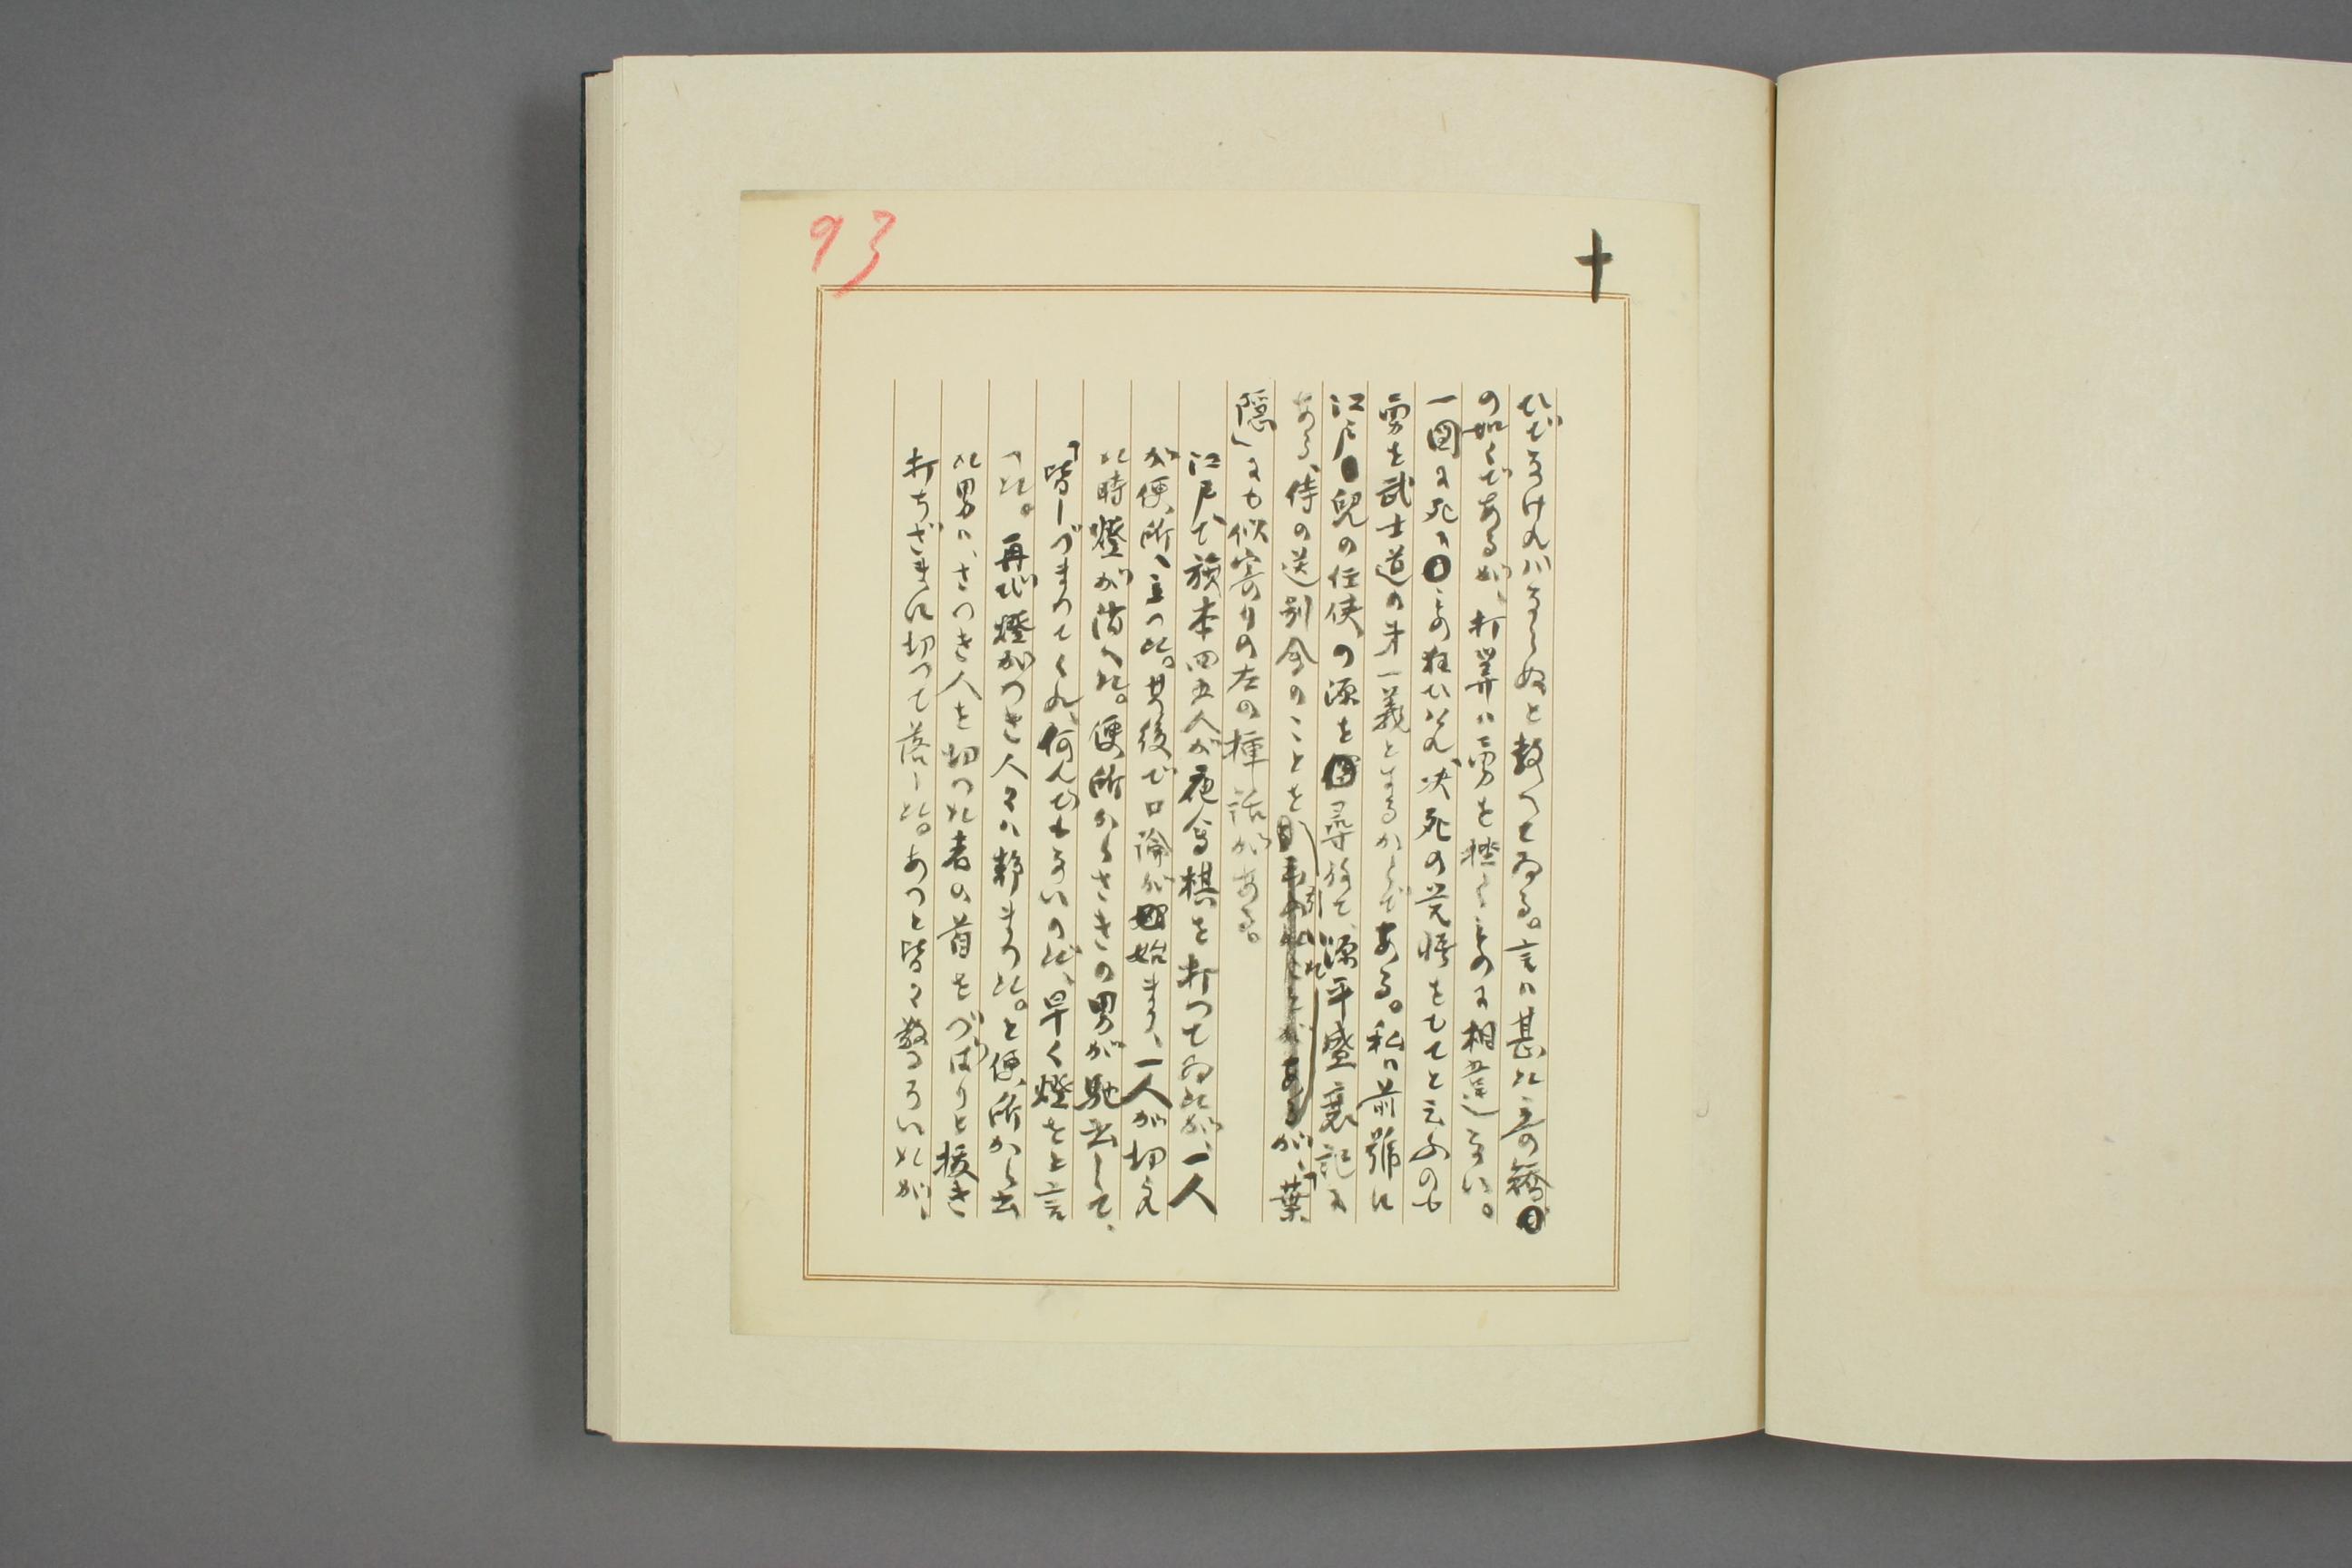 93
十
ひでなければならぬと教へてゐる。言は甚だ奇矯
の如くであるが、打算は勇を挫くものに相違ない。
一図に死にもの狂ひだれ、决死の覚悟をもてと云ふのも
勇を武士道の第一義とするからである。私は前號に
江戸兒の任侠の源を尋ねて、源平盛衰記に
ある、侍の送別会のことを引いたが、「葉
隠」にも似寄りの左の揷話がある。
江戸で旗本四五人が夜会棋を打つてゐたが、一人
が便所へ立つた。其後で口論が始まり、一人が切ら
れ時燈が消へた。便所からさきの男が馳出して、
「皆しづまつてくれ、何んでもないのだ、早く燈をと言
つた。再び燈がつき人々は静まつた。と便所から出
た男は、さつき人を切つた者の首をづばりと援き
打ちざまに切つて落した。あつと皆々教るいたが、